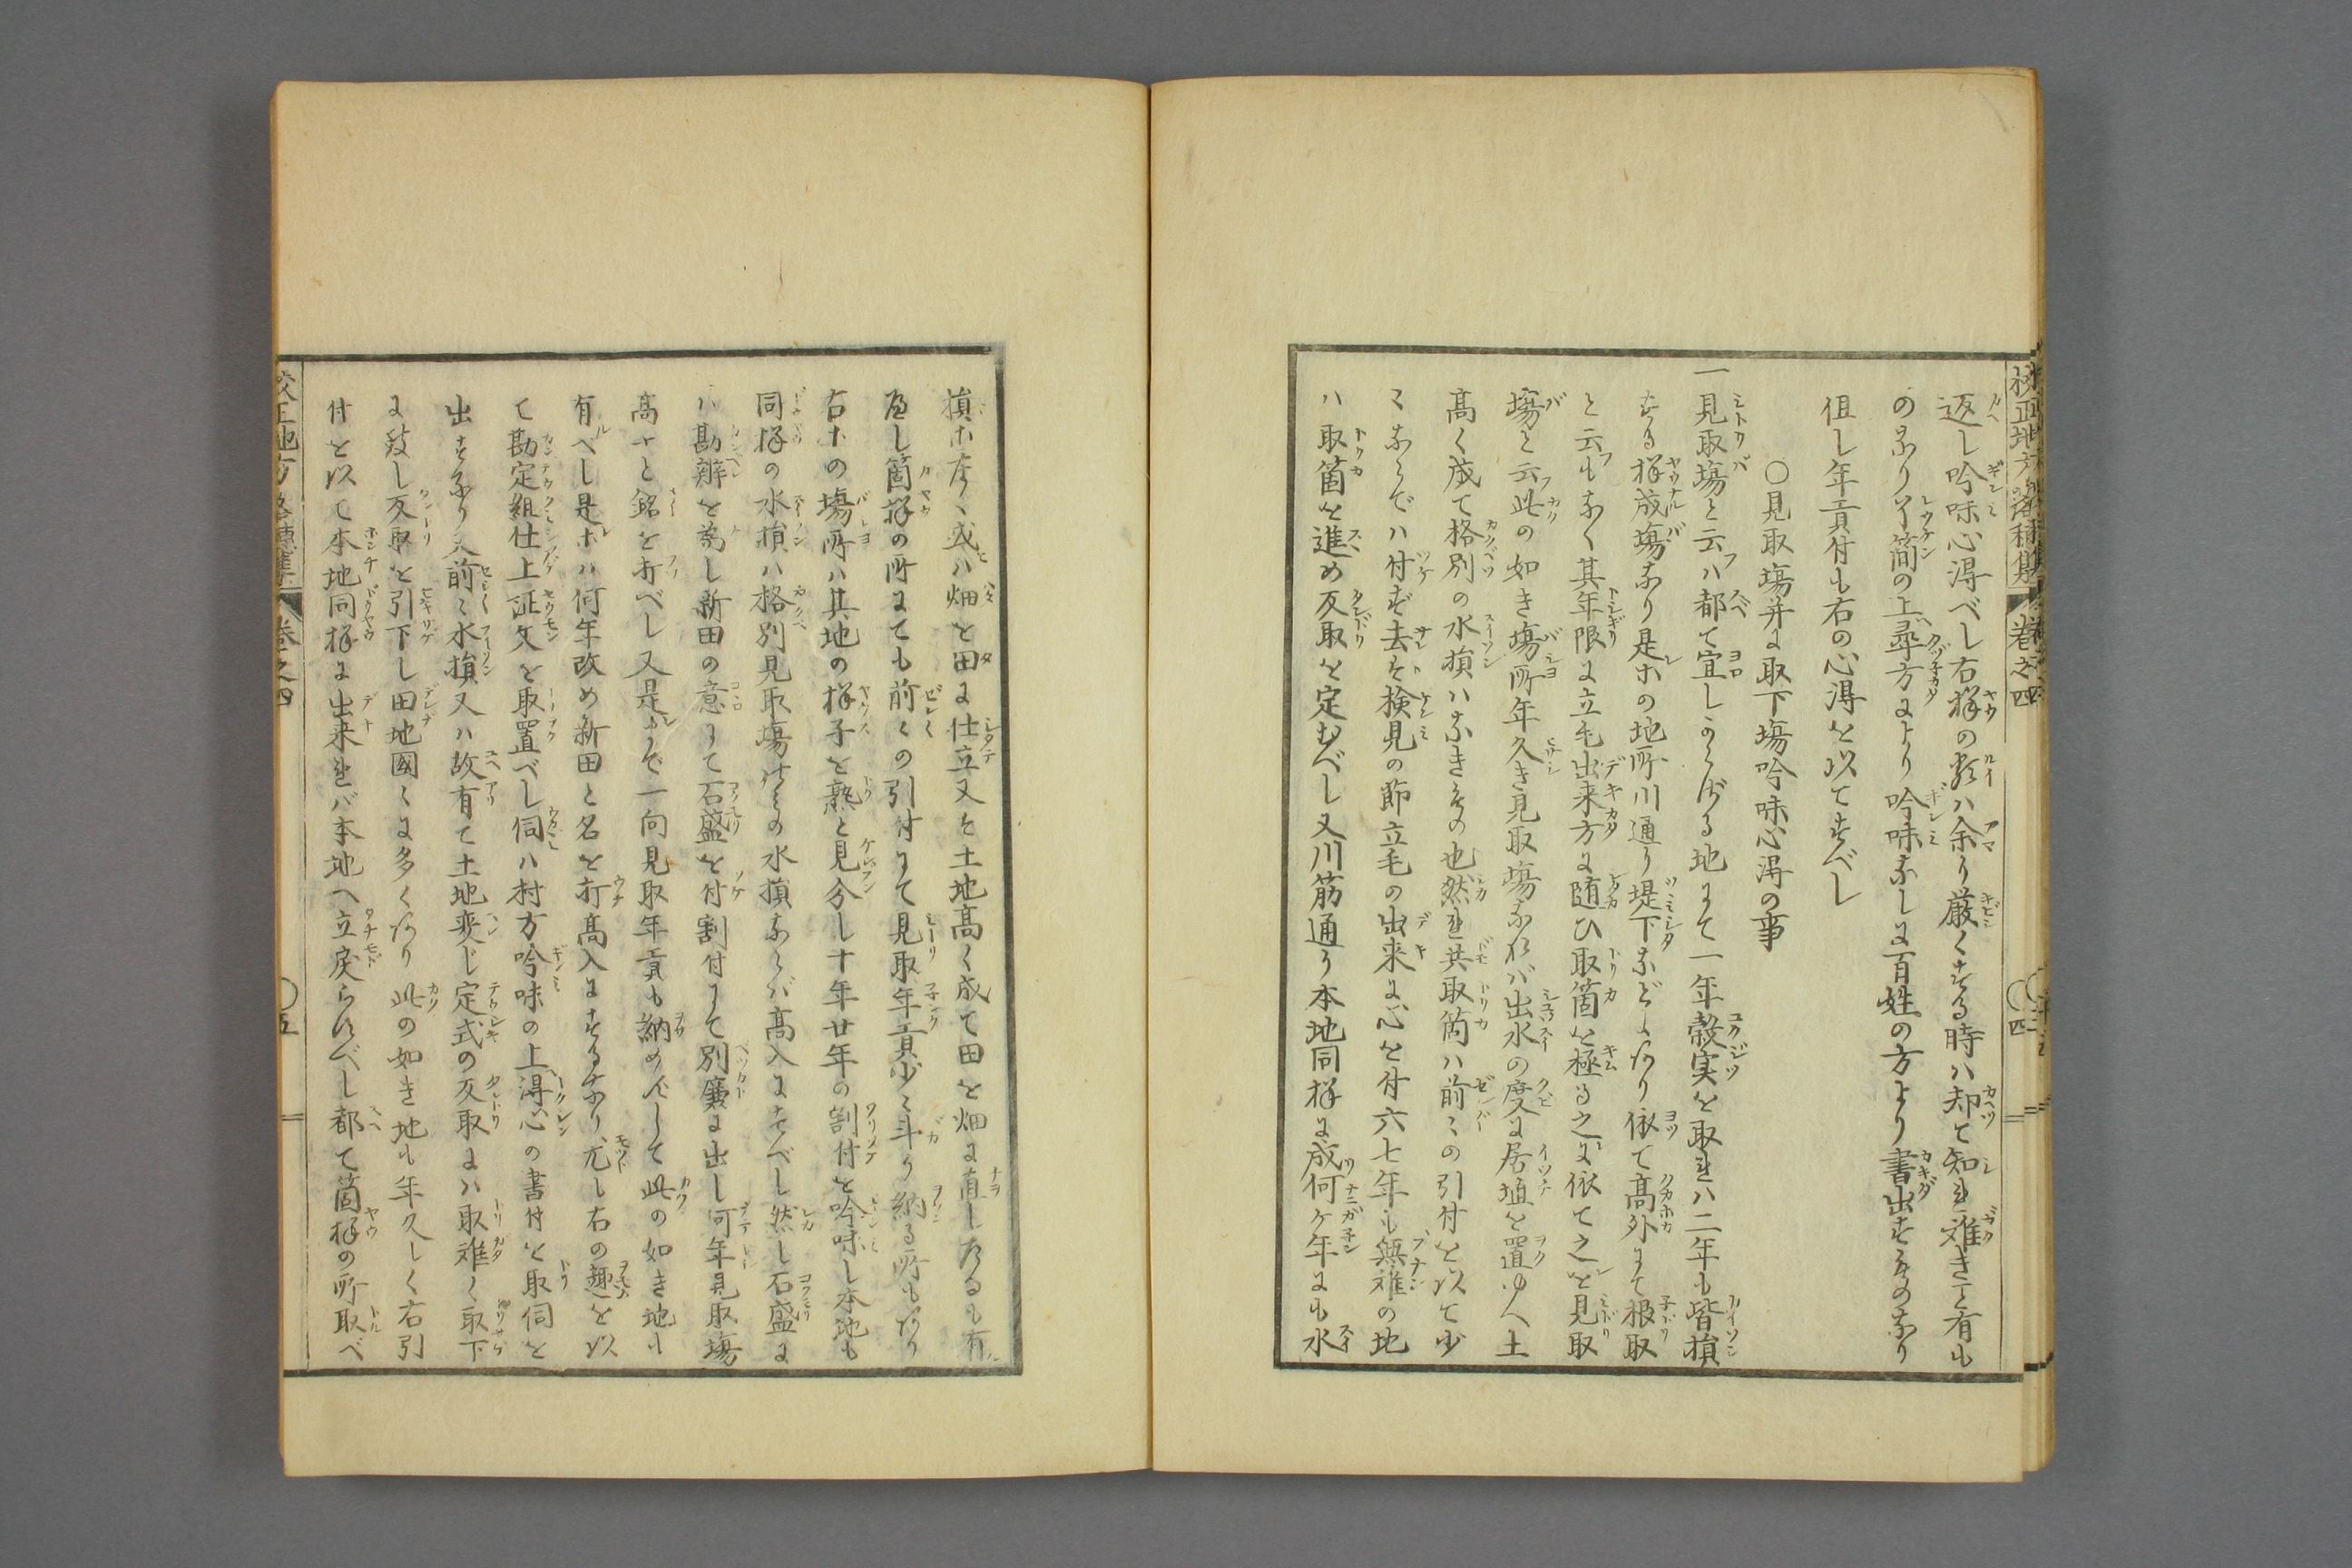 校正地方落穂集 巻之四 ○四
返し吟味心得べし右様の類ハ余り厳くする時ハ却て知れ難きこと有も
のあり了簡の上尋方により吟味なしに百姓の方より書出すものなり
但し年貢付も右の心得を以てすべし
○見取場并に取下場吟味心得の事
一見取場と云ハ都て宜しからざる地にて一年穀実を取れハ二年も皆損
する様成場なり是等の地所川通り堤下などにあり依て高外にて根取
と云もなく其年限に立毛出来方に随ひ取箇を極る之に依て之を見取
場と云此の如き場所年久き見取場なれバ出水の度に居埴を置ゆへ土
高く成て格別の水損ハなきもの也然れ共取箇ハ前々の引付を以て少
々ならでハ付ず去を検見の節立毛の出来に心を付六七年も無難の地
ハ取箇を進め反取を定むべし又川筋通り本地同様に成何ケ年にも水
損等なく或ハ畑を田に仕立又は土地高く成て田を畑に直したるも有
べし箇様の所にても前々の引付にて見取年貢少々斗り納る所もあり
右等の場所ハ其地の様子を熟と見分し十年廿年の割付を吟味し本地も
同様の水損ハ格別見取場計の水損ならバ高入にすべし然し石盛に
ハ勘辨を為し新田の意にて石盛を付割付にて別廉に出し何年見取場
高入と銘を打べし又是まで一向見取年貢も納めずして此の如き地も
有べし是等ハ何年改め新田と名を打高入にするなり尤し右の趣を以
て勘定組仕上証文を取置べし伺ハ村方吟味の上得心の書付を取伺を
出すなり又前々水損又ハ故有て土地変じ定式の反取にハ取難く取下
に致し反取を引下し田地國々に多くあり此の如き地も年久しく右引
付を以て本地同様に出来れバ本地へ立戻らすべし都て箇様の所取べ
校正地方落穂集 巻之四 ○五